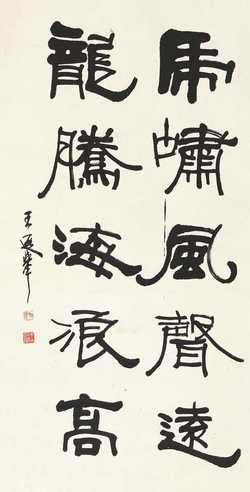 虎嘯風聲遠
龍騰海浪高
王遐舉